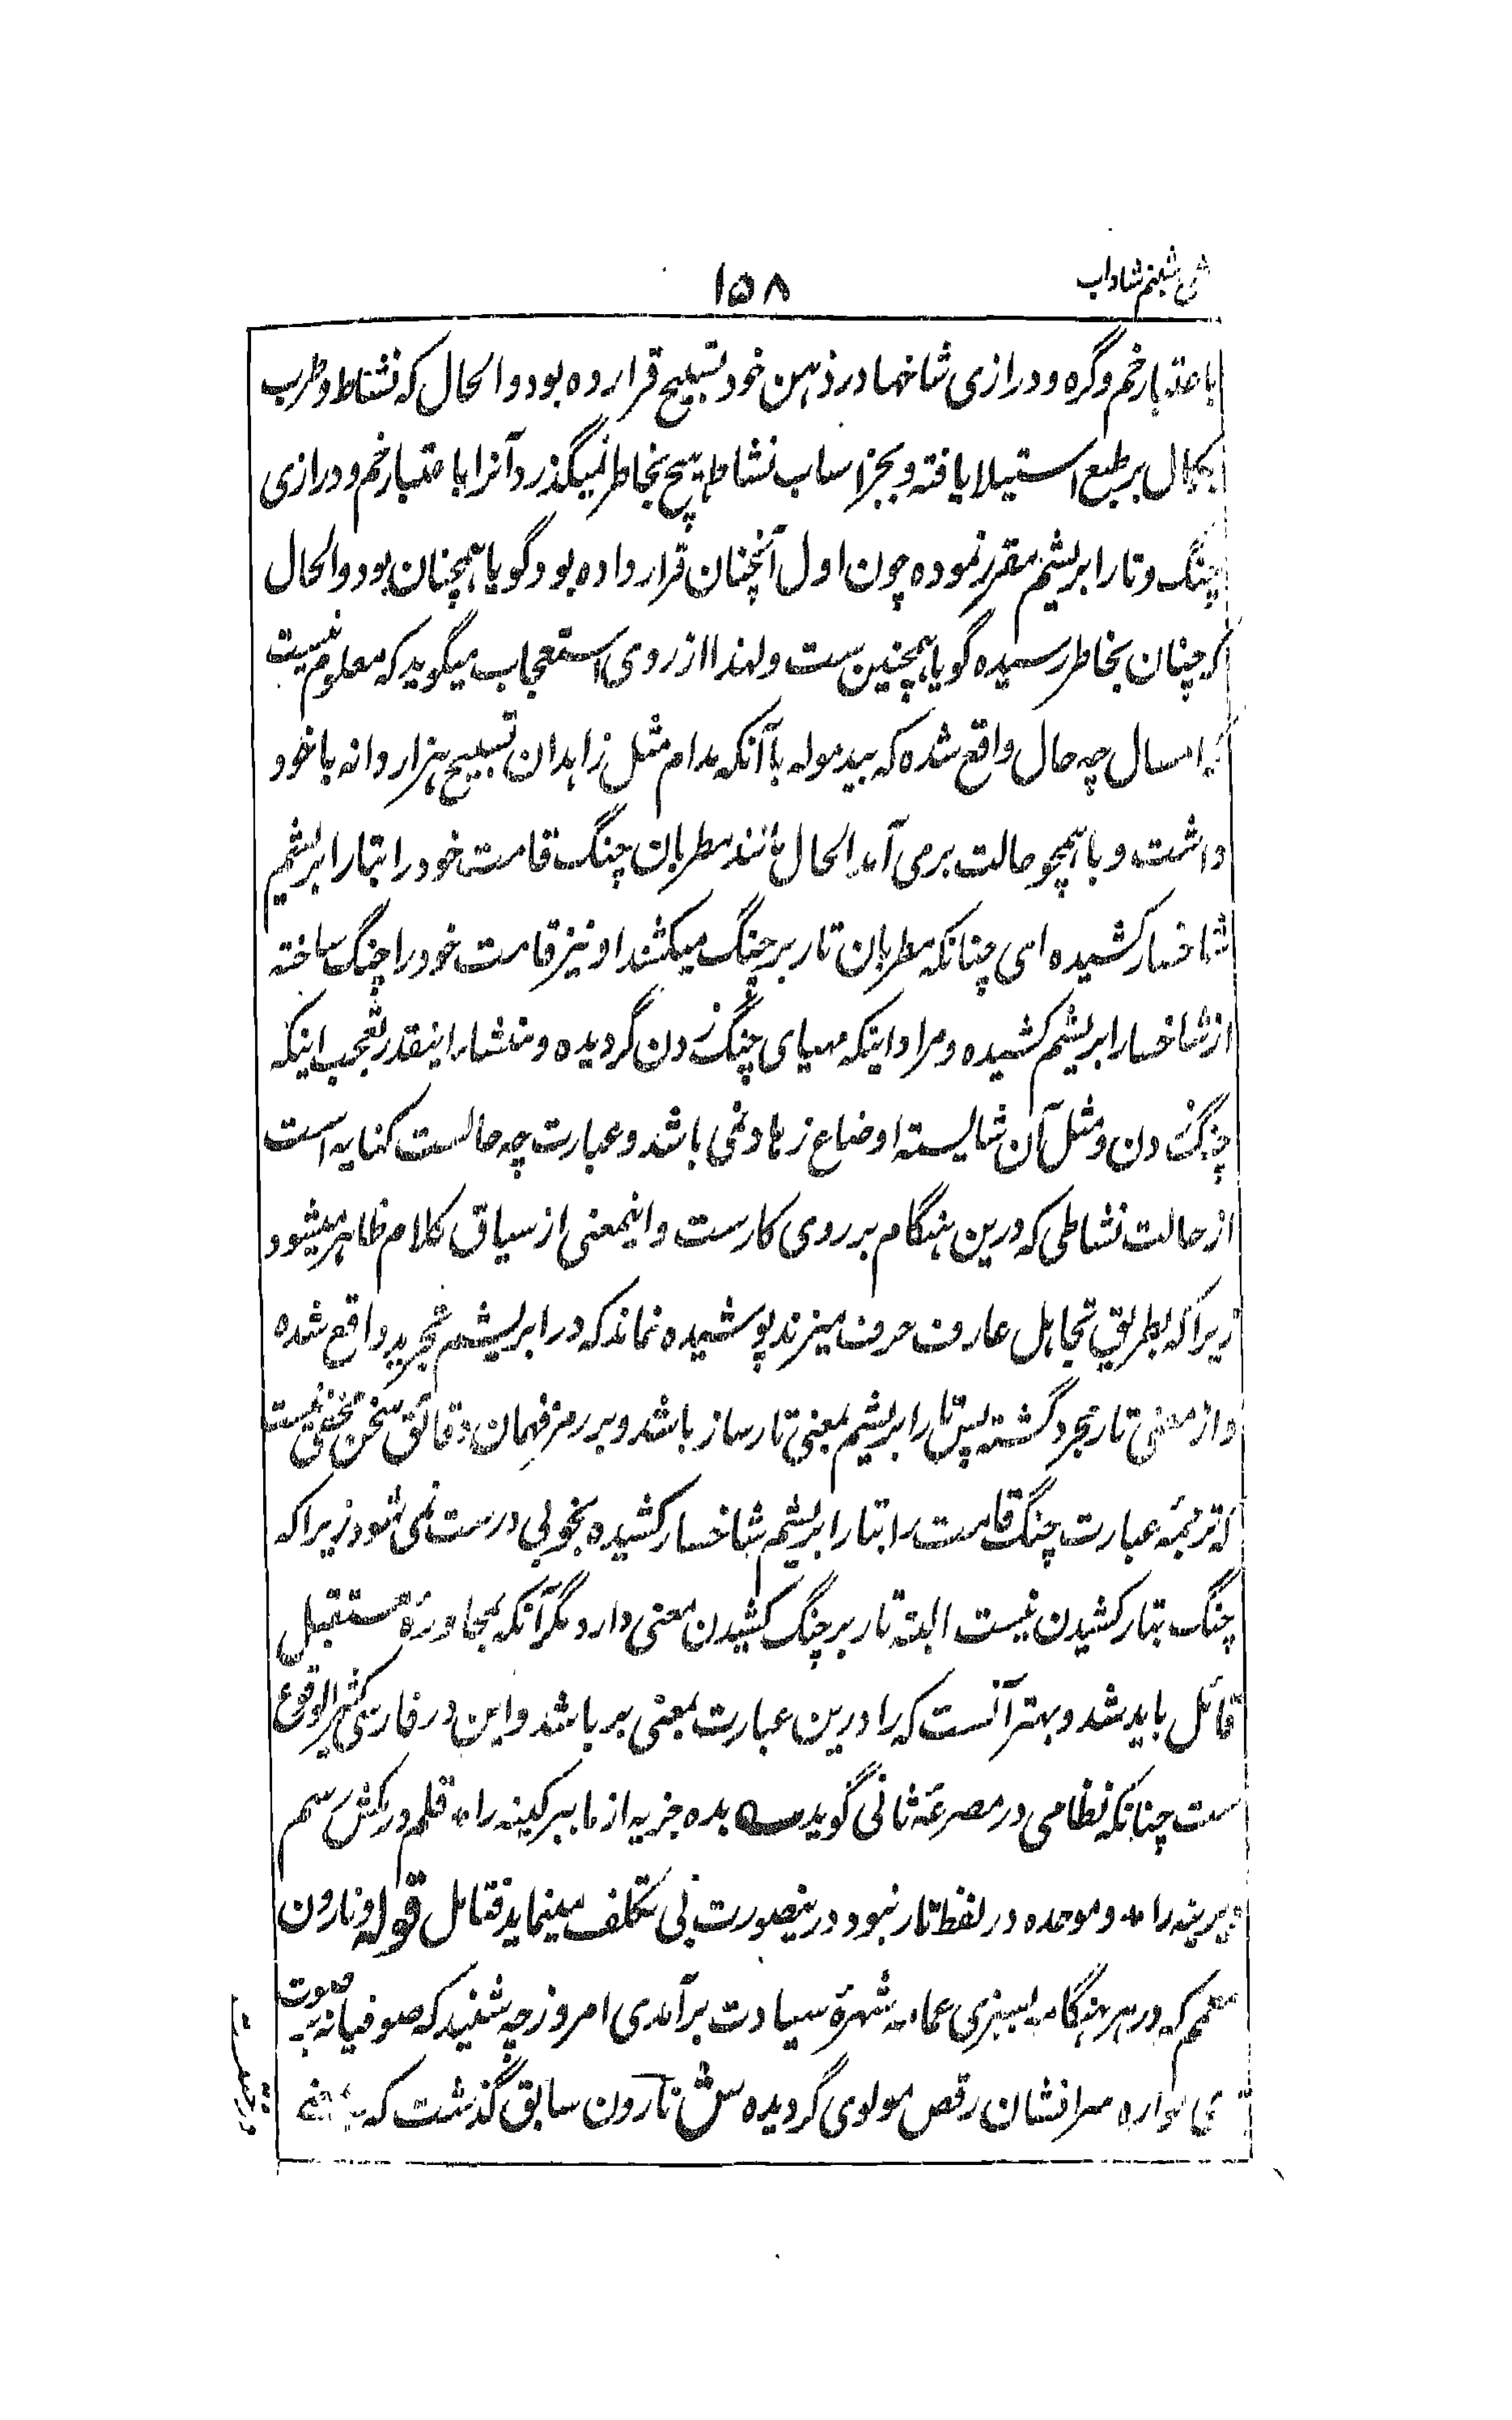 شرح شبنم شاداب
۱۵۸
باعتبار خم و گره و درازی شاخها در ذهن خود تسبیح قرار ده بود و الحال که نشاط و طرب
بکمال بر طبع استیلا یافته و بجز اسباب نشاط هیچ بخاطر نمیگذرد آنرا باعتبار خم و درازی
چنگ و تار ابریشم مقرر نموده چون اول آنچنان قرار داده بود گویا همچنان بود و الحال
که چنان بخاطر رسیده گویا همچنین ست ولهذا از روی استعجاب میگوید که معلوم نیست
که امسال چه حال واقع شده که بید موله با آنکه مدام مثل زاهدان تسبیح هزار دانه با خود
داشت و با همچو حالت برمی آمد الحال مانند مطربان چنگ قامت خود را بتار ابریشم
شاخسار کشیده ای چنانکه مطربان تار بر چنگ میکشند او نیز قامت خود را چنگ ساخته
از شاخسار ابریشم کشیده و مراد اینکه مهیای چنگ زدن گردیده و منشاء اینقدر تعجب اینکه
چنگ زدن و مثل آن شایسته اوضاع زهاد نمی باشد و عبارت چه حالست کنایه است
از حالت نشاطی که درین هنگام بر روی کارست و اینمعنی از سیاق کلام ظاهر میشود
زیراکه بطریق تجاهل عارف حرف میزند پوشیده نماند که در ابریشم تجرید واقع شده
و از معنی تار مجرد گشته پس تار ابریشم بمعنی تار ساز باشد و بر رمز فهمان دقائق سخن مخفی نیست
که ترجمهٔ عبارت چنگ قامت را بتار ابریشم شاخسار کشیده بخوبی درست نمی شود زیراکه
چنگ بتار کشیدن نیست البته تار بر چنگ کشیدن معنی دارد مگر آنکه بمجاورهٔ مستقبل
قائل باید شد و بهتر آنست که را درین عبارت بمعنی بر باشد و این در فارسی کثیر الوقوع
ست چنانکه نظامی در مصرعهٔ ثانی گوید ؎ بده جزیه از ما ببر کینه را * قلم درکش رسم
دیرینه را * و موحده در لفظ تار نبود درینصورت بی تکلف مینماید فتامل قوله و نارون
معمم که در هر هنگامه بسبزی عمامه شهرهٔ سیادت برآمدی امروز چه شنید که صوفیانه بصوت
قمری همواره سرافشان رقص مولوی گردیده ش نارون سابق گذشت که
درخت